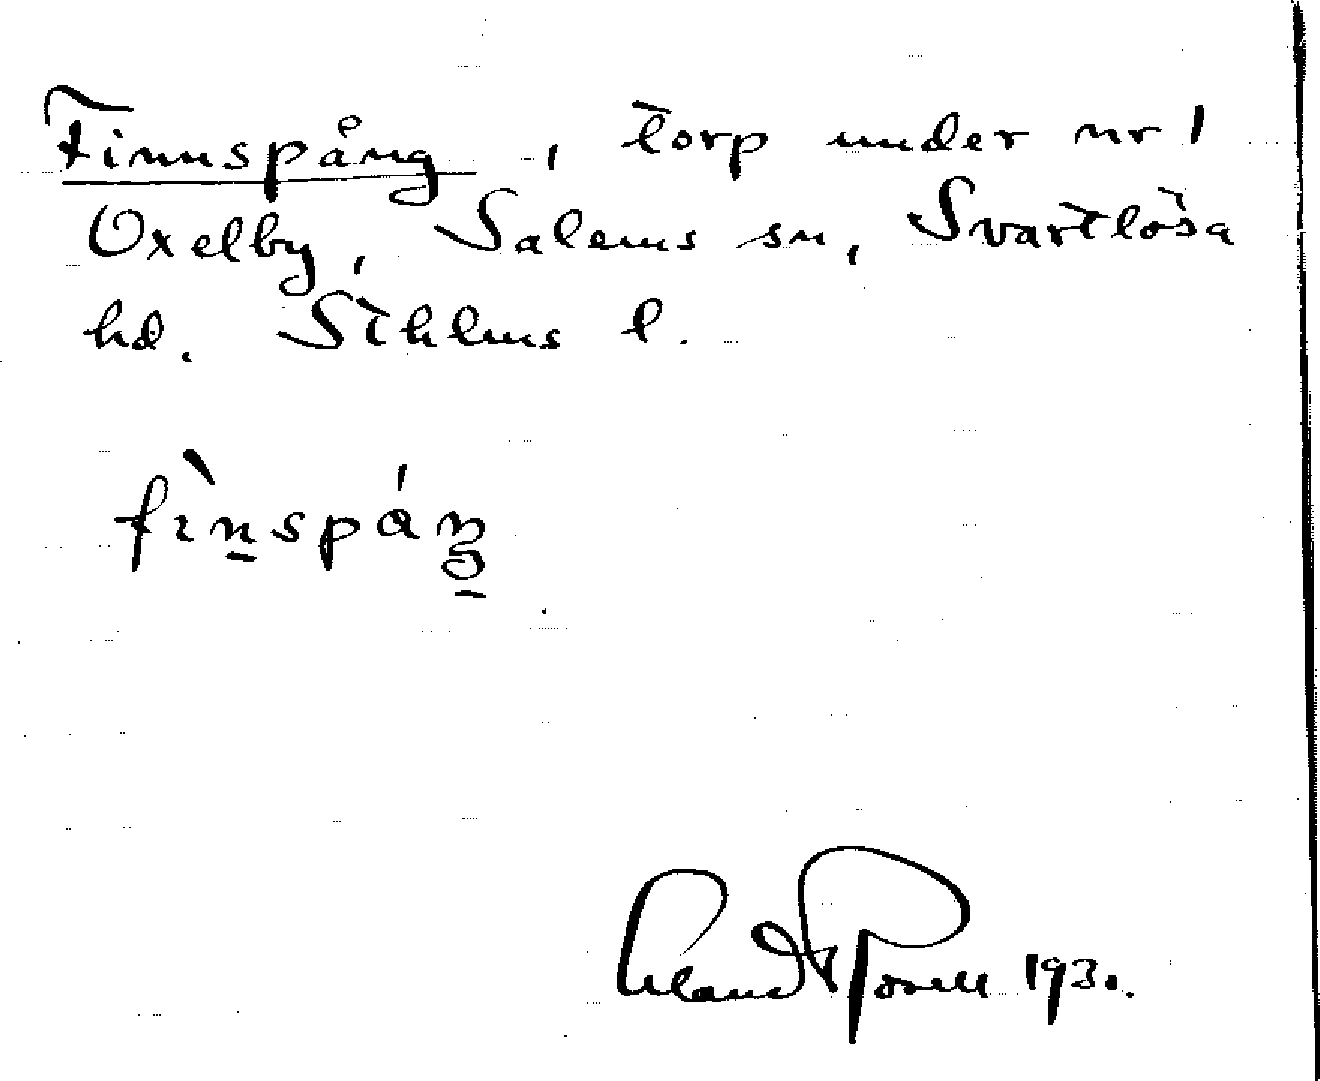 Finnspång, torp under nr 1
Oxelby, Salems sn, Svartlösa
hd. Sthlms l.
fìnspáŋ
Erland Rosell 1930.